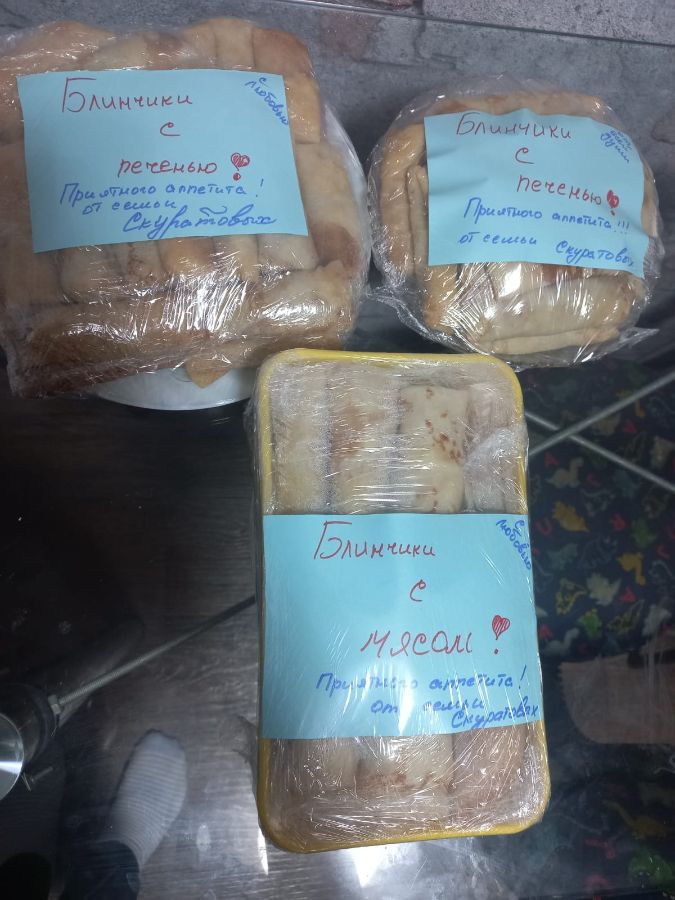 Блинчики
с
печенью!
Приятного аппетита!
от семьи
Скуратовых
с
любовью
Блинчики
с
печенью!
Приятного аппетита!!!
от семьи Скуратовых
от
всей
души
Блинчики
с
мясом!
Приятного аппетита!
от семьи
Скуратовых
с
любовью